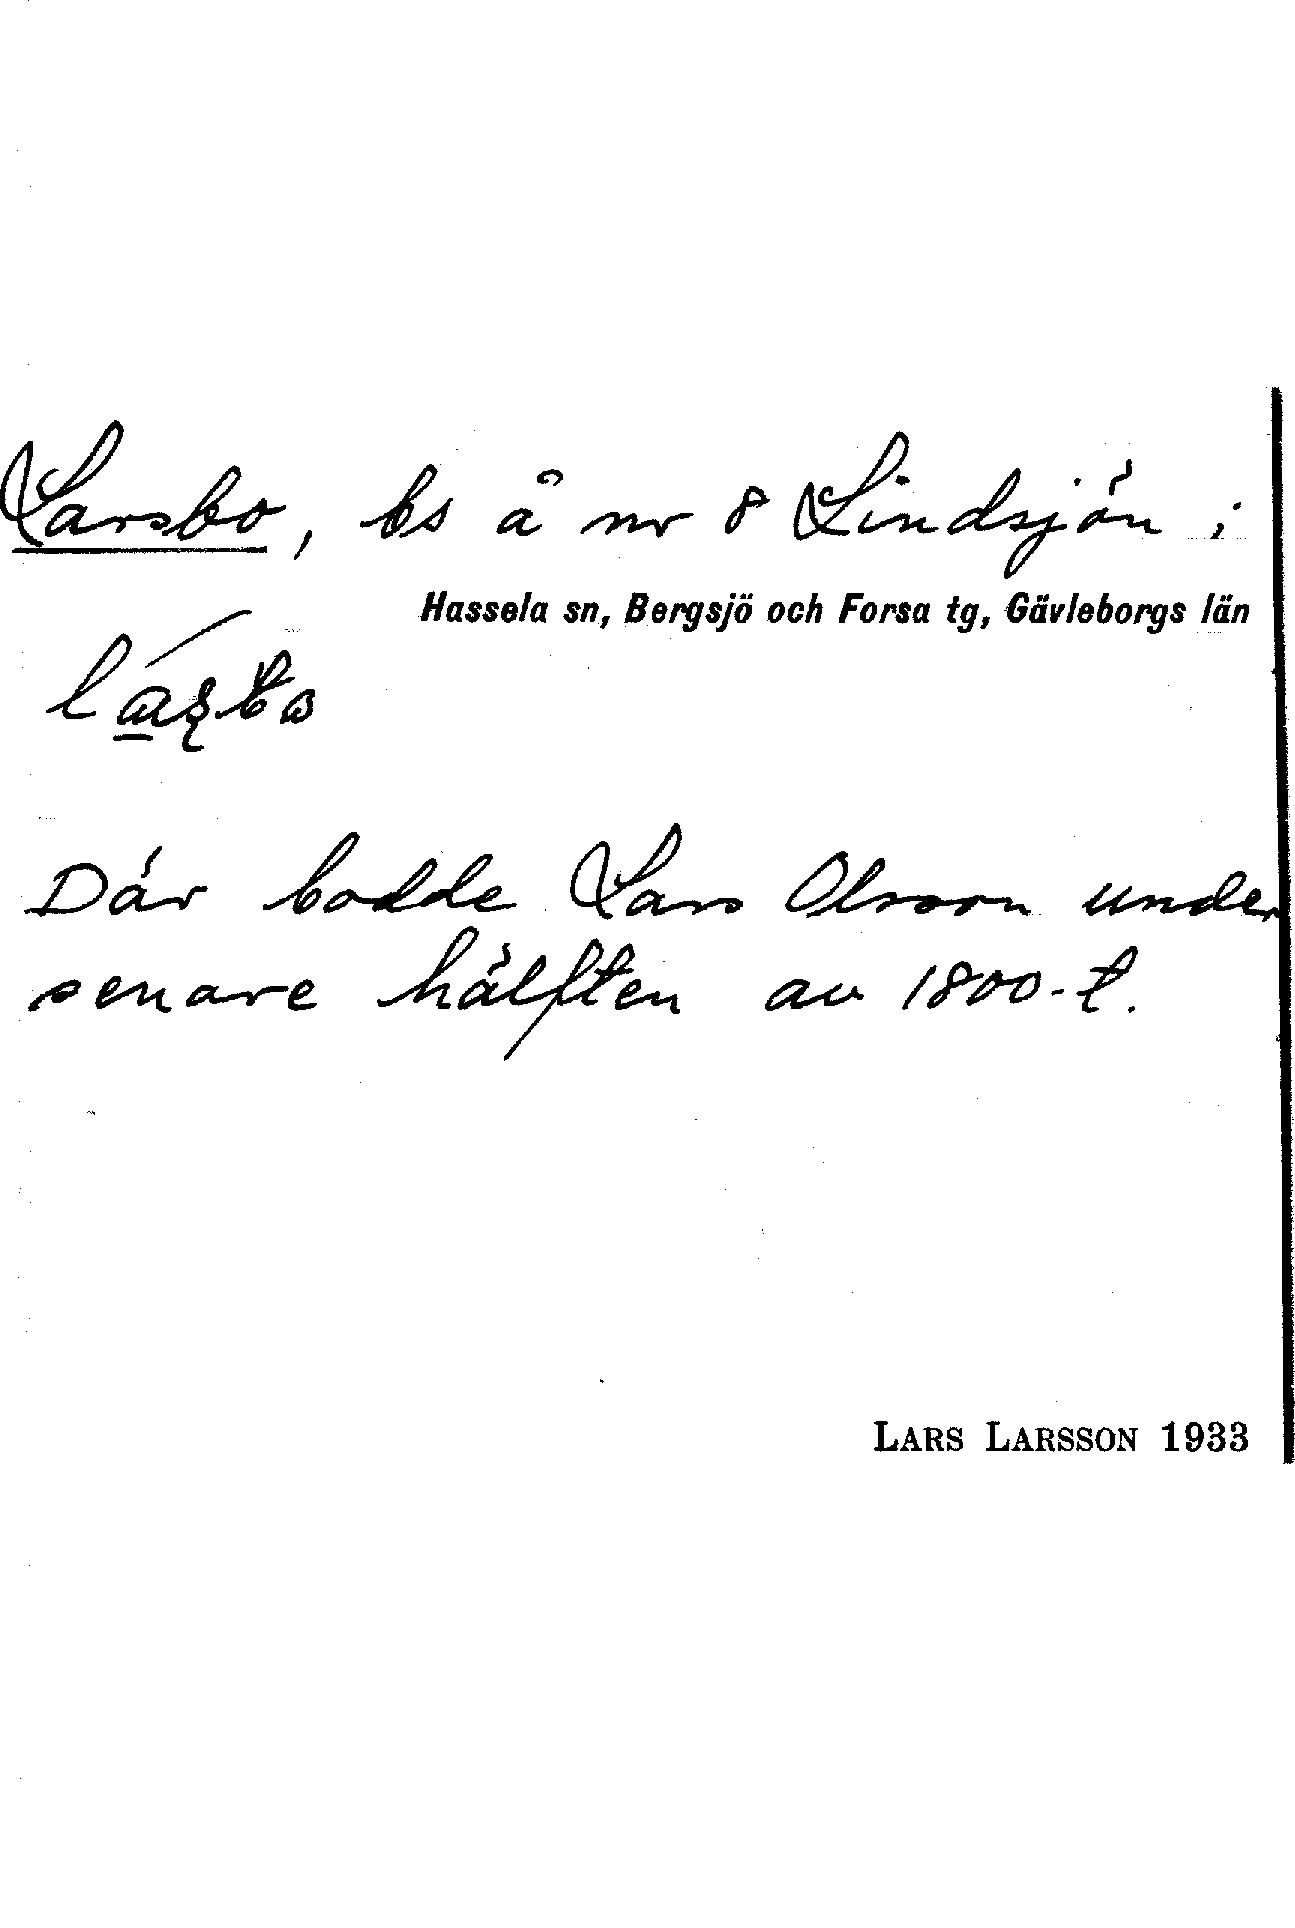 Larsbo, bs å nr 8 Lindsjön i
Hassela sn, Bergsjö och Forsa tg, Gävleborgs län
Där bodde Lars Olsson under
senare hälften av 1800-t.
LARS LARSSON 1933